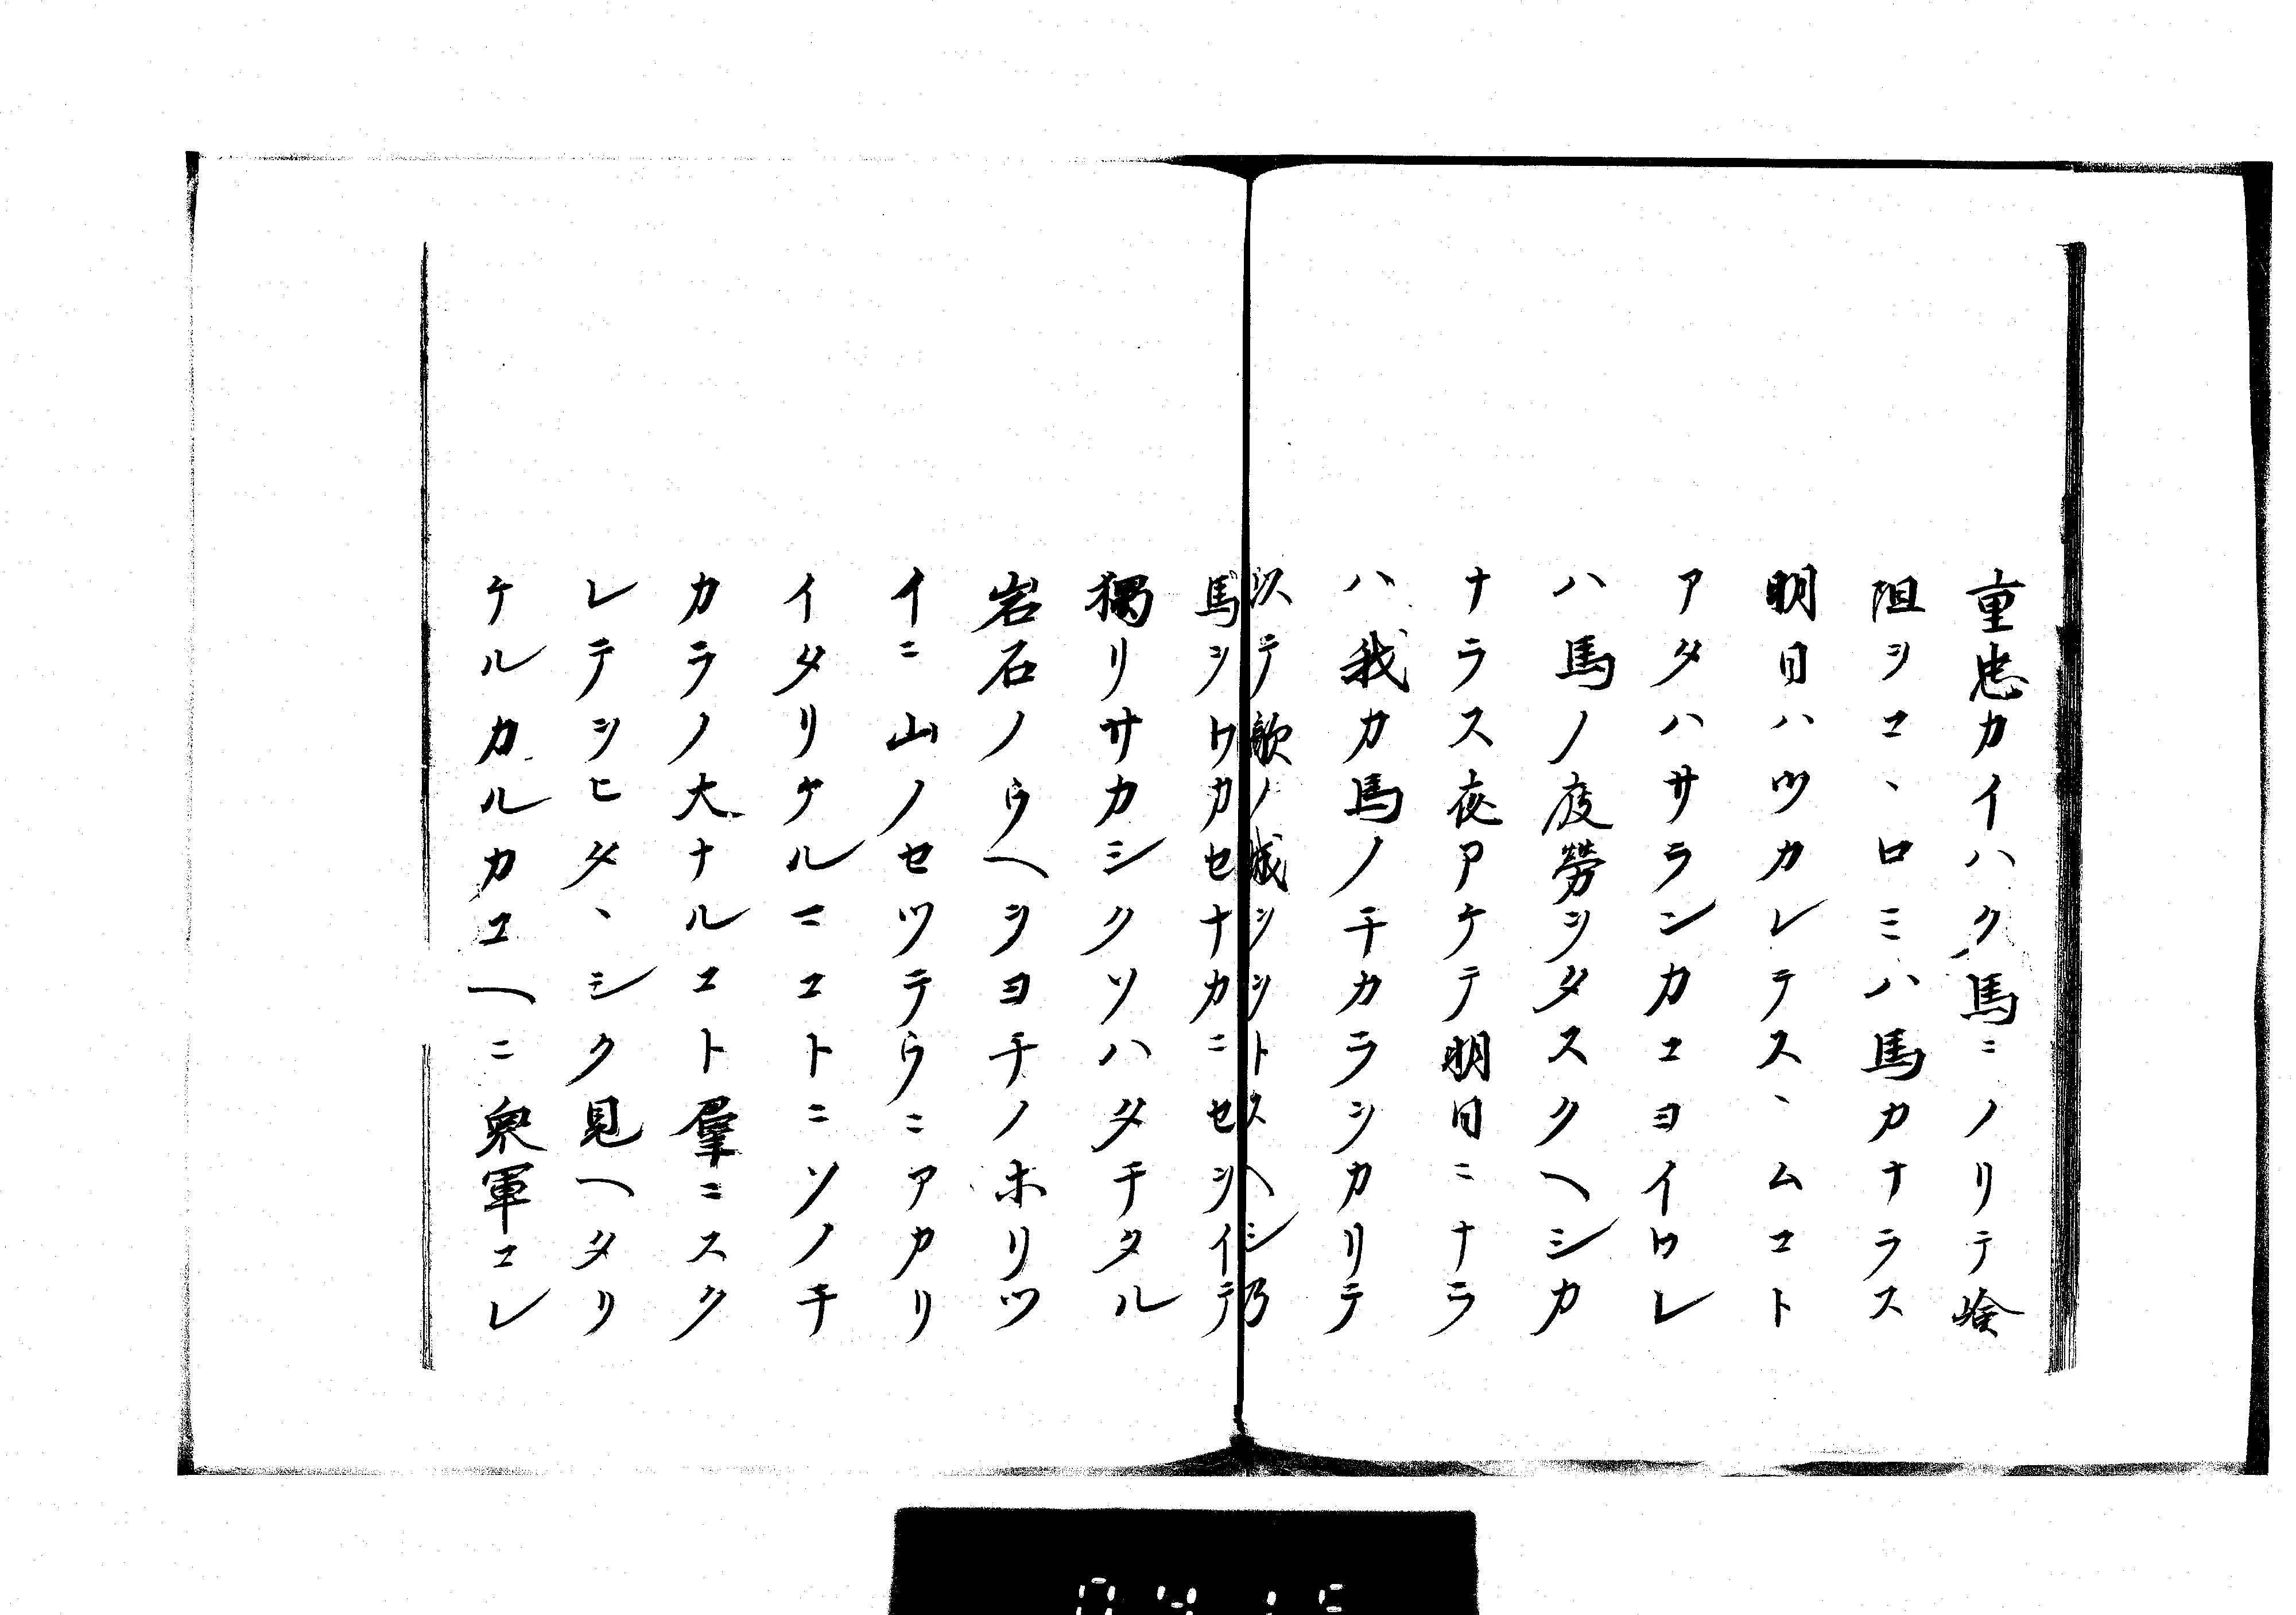 重忠カイハク馬ニノリテ嶮
阻ヲコヽロミハ馬カナラス
明日ハツカレテスヽムコト
アタハサランカコヨイワレ
ハ馬ノ疲勞ヲタスクヘシカ
ナラス夜アケテ明日ニナラ
ハ我カ馬ノチカラヲカリテ
以テ敵ノ城ヲヲトスヘシ乃
馬ヲワカセナカニセヲイテ
獨リサカシクソハタチタル
岩石ノウヘヲヨチノホリツ
イニ山ノセツテウニアカリ
イタリケルマコトニソノチ
カラノ大ナルコト羣ニスク
レテヲヒタヽシク見ヘタリ
ケルカルカユヘニ衆軍コレ